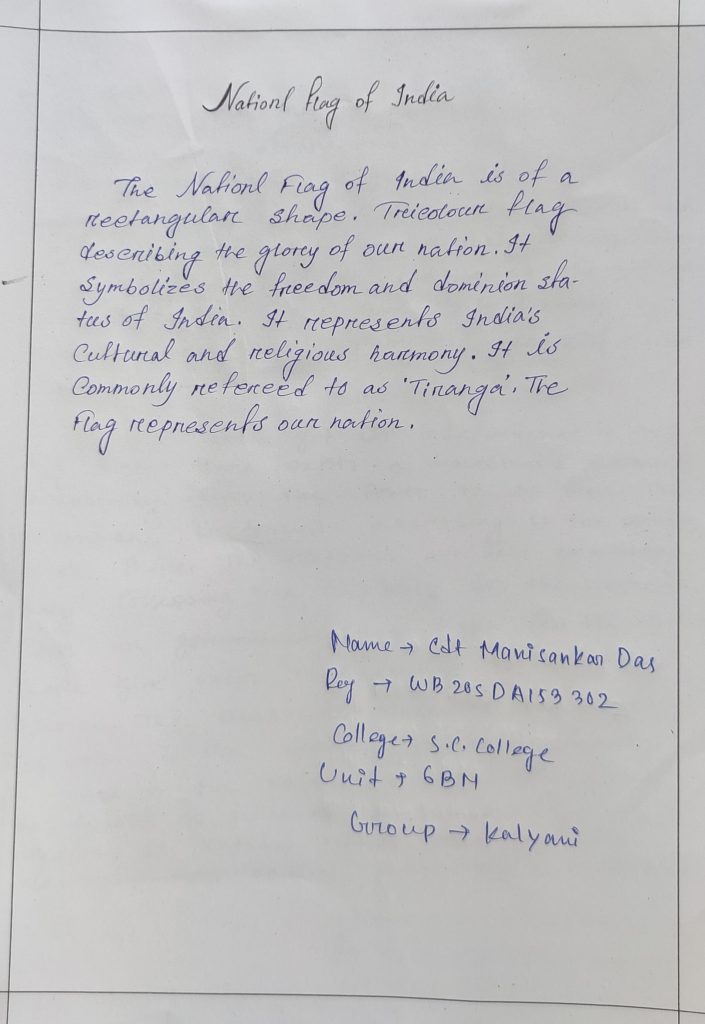 Nationl Flag of India
The Nationl Flag of India is of a
rectangular shape. Treicolour flag
describing the glorey of our nation. It
Symbolizes the freedom and dominion sta-
tus of India. It represents India's
Cultural and religious harmony. It is
Commonly refereed to as 'Tiranga'. The
Flag represents our nation.
Name → Cdt Manisankar Das
Reg → WB20SDA153302
College → S.C. College
Unit → 6BN
Group → Kalyani